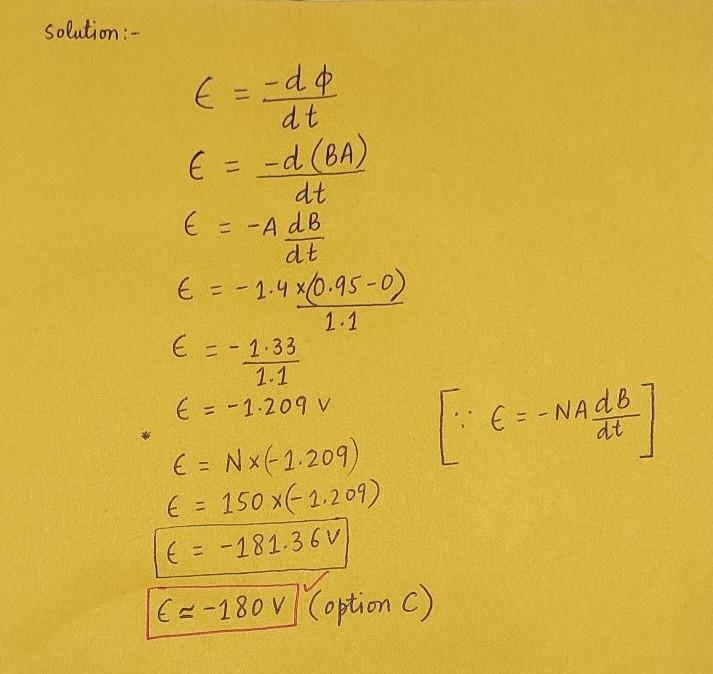 Solution:-
ϵ = -dϕ/dt
ϵ = -d(BA)/dt
ϵ = -A dB/dt
ϵ = -1.4×(0.95-0)/1.1
ϵ = -1.33/1.1
ϵ = -1.209 V
[∵ ϵ = -NA dB/dt]
*
ϵ = N×(-1.209)
ϵ = 150×(-1.209)
ϵ = -181.36V
ϵ ≃ -180 V ✓ (option C)